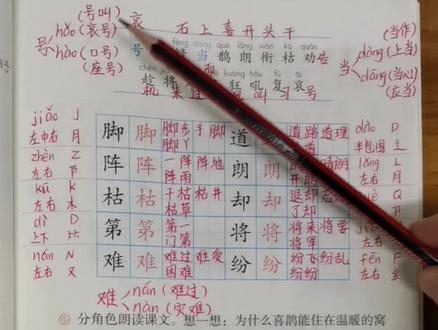 (号叫)
háo(哀号)
号
hào(口号)
(座号)
哀 石上喜开头干
号 当 鹊 朗 衔 枯 劝告
当
(当作)
dàng(上当)
dāng(当心)
(应当)
趁 将 狂 吼 复 哀
机 来 叫 习 号
jiǎo J
左中右 月
脚 脚 脚步 手脚
脚丫
道 道 道路 道理
dào D
半包围 辶
zhèn Z
左右 阝
阵 阵 一阵 阵地
阵雨
朗 朗 晴朗
lǎng L
左右 月
kū K
左右 木
枯 枯 干枯 枯井
枯草
却 却 退却 忘却
了却
Q
左右 卩
dì D
上下 ⺮
第 第 第一
门第
将 将 将来 将要
将军
J
左右
nán N
左右 又
难 难 难过 难受
困难
纷 纷 纷飞 纷乱
纷纷
fēn F
左右 纟
难
nán(难过)
nàn(灾难)
分角色朗读课文。想一想：为什么喜鹊能住在温暖的窝